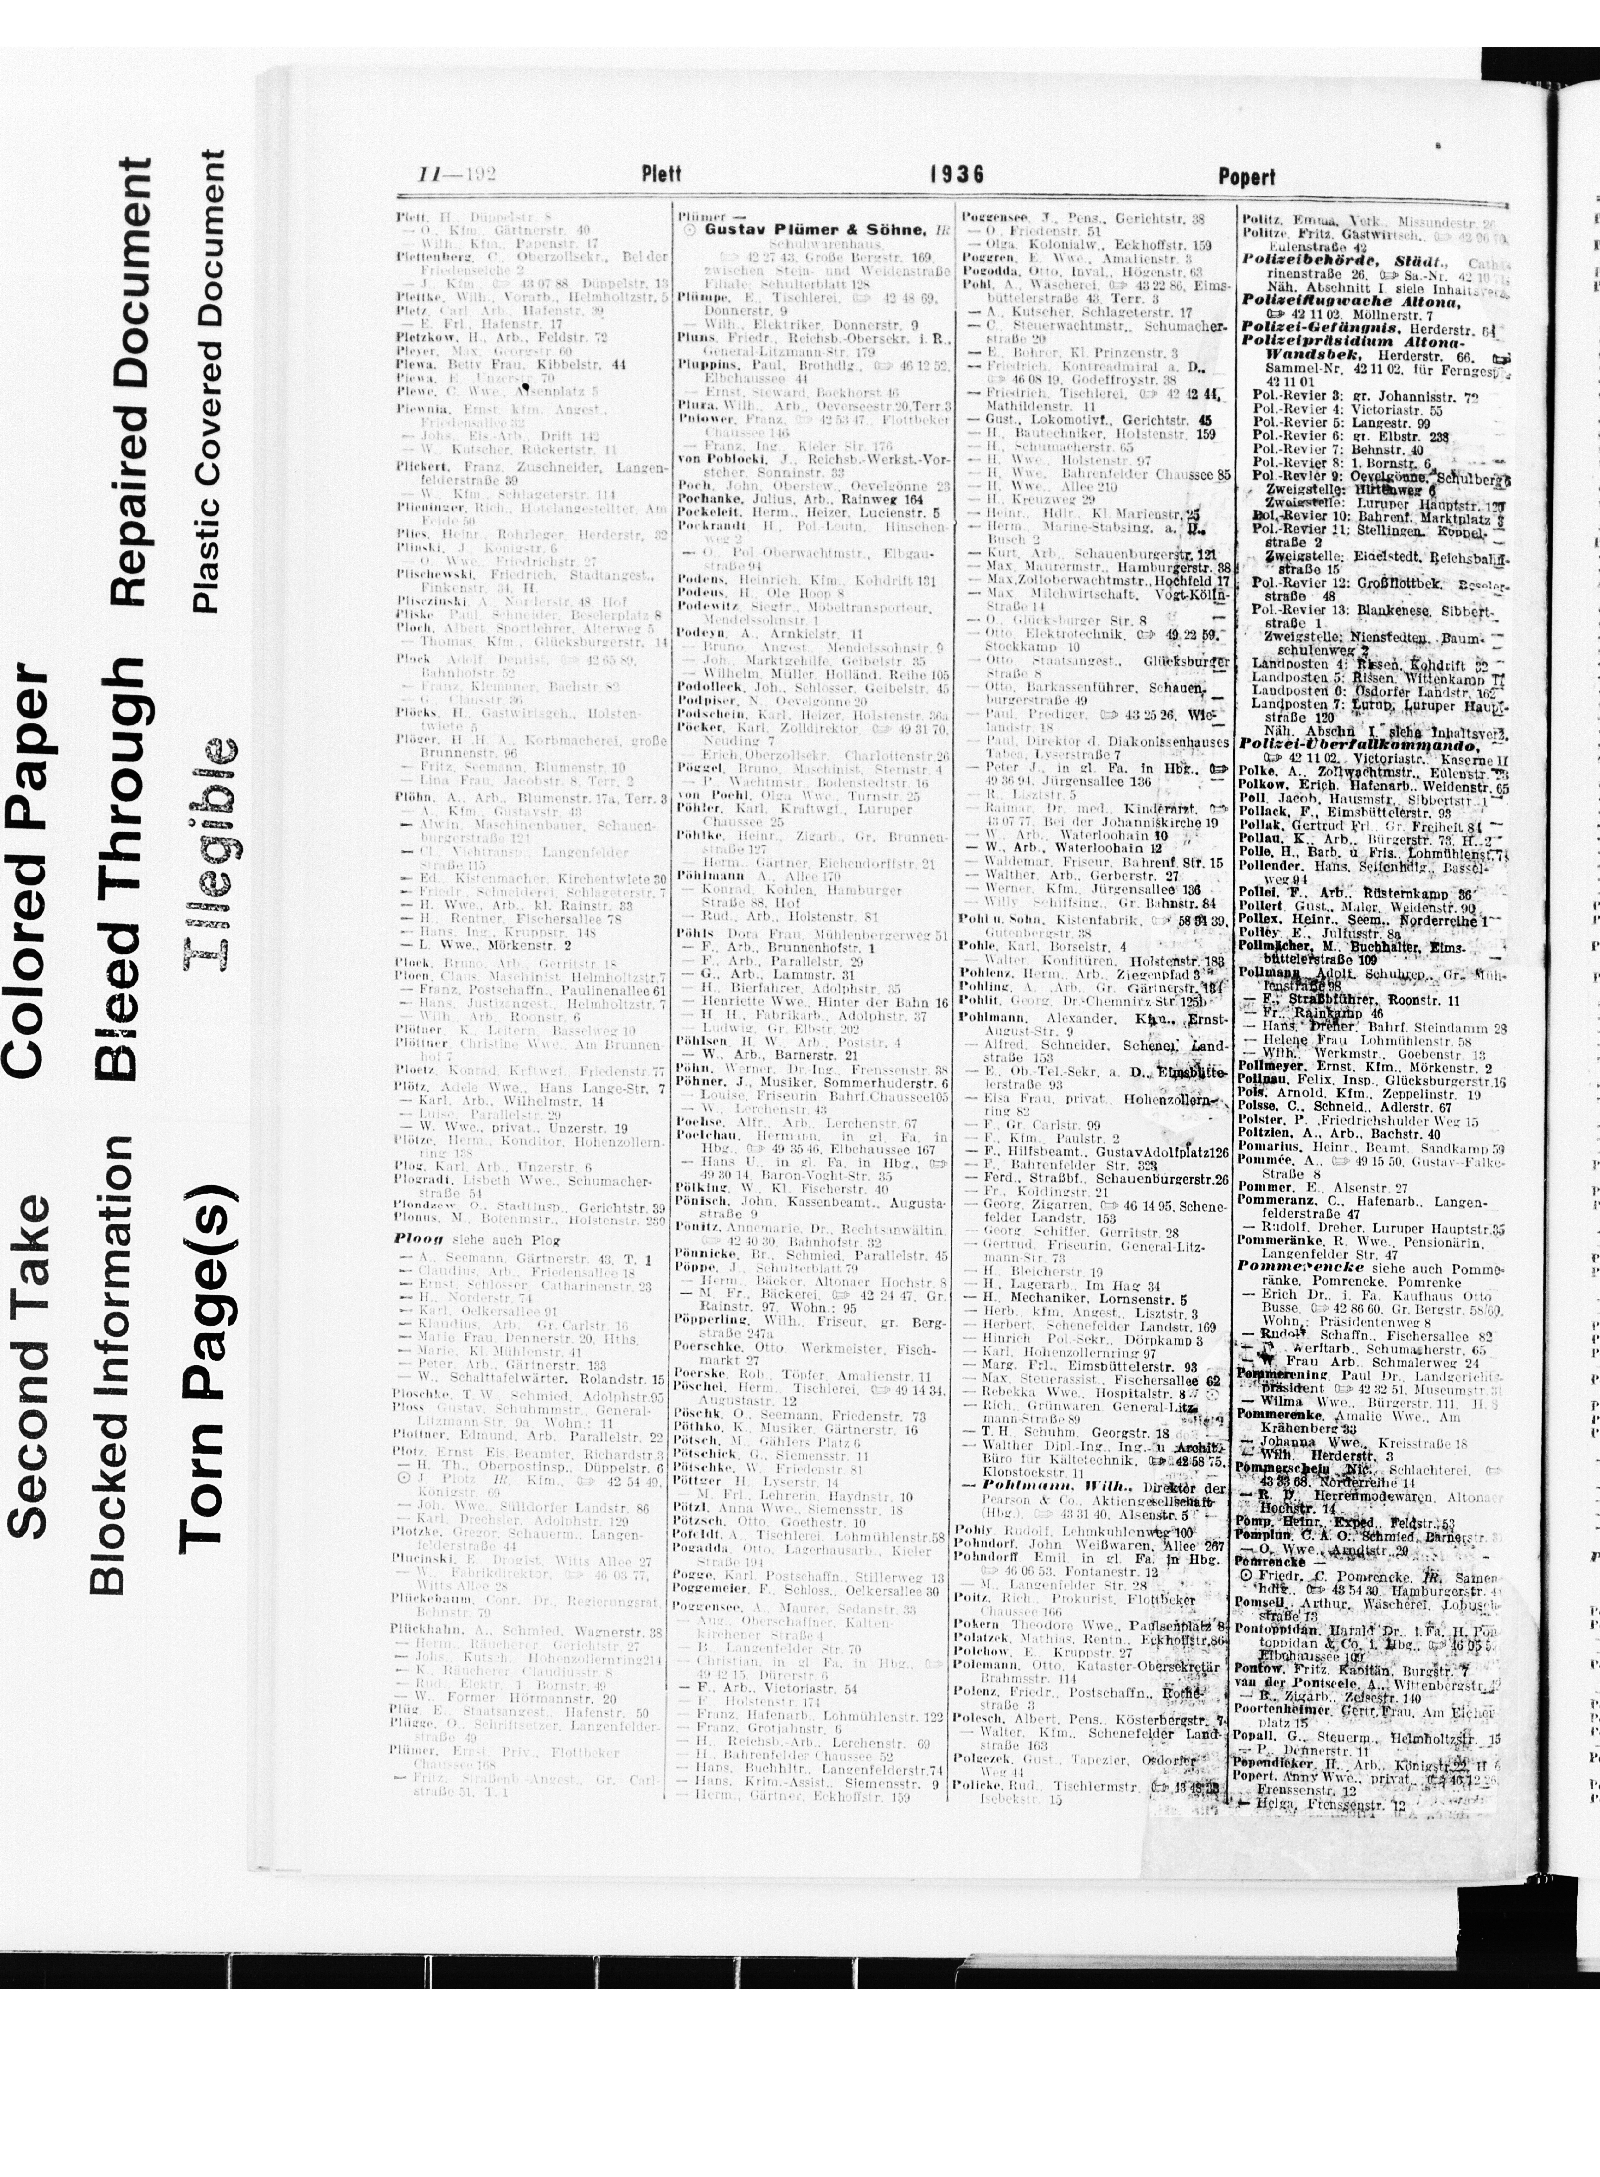 Second Take
Colored Paper
Blocked Information
Bleed Through
Repaired Document
Torn Page(s)
Illegible
Plastic Covered Document
II—192
Plett
1936
Popert
Plett, H., Düppelstr. 8
— O., Kfm., Gärtnerstr. 40
— Wilh., Kfm., Papenstr. 17
Plettenberg, C., Oberzollsekr., Bei der
Friedenseiche 2
— J., Kfm., 43 07 88, Düppelstr. 13
Plettke, Wilh., Vorarb., Helmholtzstr. 5
Pletz, Carl, Arb., Hafenstr. 39
— E. Frl., Hafenstr. 17
Pletzkow, H., Arb., Feldstr. 72
Pleyer, Max, Georgstr. 60
Plewa, Betty Frau, Kibbelstr. 44
Plewa, E., Unzerstr. 70
Plewe, C. Wwe., Alsenplatz 5
Plewnia, Ernst, kfm. Angest.,
Friedensallee 32
— Johs., Eis.-Arb., Drift 142
— W., Kutscher, Rückertstr. 11
Plickert, Franz, Zuschneider, Langen-
felderstraße 39
— W., Kfm., Schlageterstr. 114
Plieninger, Rich., Hotelangestellter, Am
Felde 50
Plies, Heinr., Rohrleger, Herderstr. 32
Plinski, J., Königstr. 6
— O. Wwe., Friedrichstr. 27
Plischewski, Friedrich, Stadtangest.,
Finkenstr. 34, H.
Plisczinski, A., Norderstr. 48, Hof
Pliske, Paul, Schneider, Beselerplatz 8
Ploch, Albert, Sportlehrer, Alterweg 5
— Thomas, Kfm., Glücksburgerstr. 14
Plock, Adolf, Dentist, 42 65 89,
Bahnhofstr. 52
— Franz, Klempner, Bachstr. 82
— G., Clausstr. 36
Plöcks, H., Gastwirtsgeh., Holsten-
twiete 5
Plöger, H. H. A., Korbmacherei, große
Brunnenstr. 96
— Fritz, Seemann, Blumenstr. 10
— Lina Frau, Jacobstr. 8, Terr. 2
Plöhn, A., Arb., Blumenstr. 17a, Terr. 3
— A., Kfm., Gustavstr. 43
— Alwin, Maschinenbauer, Schauen-
burgerstraße 121
— Cl., Viehtransp., Langenfelder
Straße 115
— Ed., Kistenmacher, Kirchentwiete 30
— Friedr., Schneiderei, Schlageterstr. 7
— H. Wwe., Arb., kl. Rainstr. 33
— H., Rentner, Fischersallee 78
— Hans, Ing., Kruppstr. 148
— L. Wwe., Mörkenstr. 2
Plock, Bruno, Arb., Gerritstr. 18
Ploen, Claus, Maschinist, Helmholtzstr. 7
— Franz, Postschaffn., Paulinenallee 61
— Hans, Justizangest., Helmholtzstr. 7
— Wilh., Arb., Roonstr. 6
Plötner, K., Leitern, Basselweg 10
Plöttner, Christine Wwe., Am Brunnen-
hof 7
Ploetz, Konrad, Krftwgf., Friedenstr. 77
Plötz, Adele Wwe., Hans Lange-Str. 7
— Karl, Arb., Wilhelmstr. 14
— Luise, Parallelstr. 29
— W. Wwe., privat., Unzerstr. 19
Plötze, Herm., Konditor, Hohenzollern-
ring 138
Plog, Karl, Arb., Unzerstr. 6
Plogradi, Lisbeth Wwe., Schumacher-
straße 54
Plondzew, O., Stadtinsp., Gerichtstr. 39
Plonus, M., Botenmstr., Holstenstr. 230
Ploog siehe auch Plog
— A., Seemann, Gärtnerstr. 43, T. 1
— Claudius, Arb., Friedensallee 18
— Ernst, Schlosser, Catharinenstr. 23
— H., Norderstr. 74
— Karl, Oelkersallee 91
— Klaudius, Arb., Gr. Carlstr. 16
— Marie Frau, Dennerstr. 20, Hths.
— Marie, Kl. Mühlenstr. 41
— Peter, Arb., Gärtnerstr. 133
— W., Schalttafelwärter, Rolandstr. 15
Ploschke, T. W., Schmied, Adolphstr. 95
Ploss, Gustav, Schuhmstr., General-
Litzmann-Str. 9a, Wohn.: 11
Plottner, Edmund, Arb., Parallelstr. 22
Plotz, Ernst, Eis.-Beamter, Richardstr. 3
— H. Th., Oberpostinsp., Düppelstr. 6
⊙ J. Plotz, IR, Kfm., 42 54 49,
Königstr. 69
— Joh. Wwe., Sülldorfer Landstr. 86
— Karl, Drechsler, Adolphstr. 129
Plotzke, Gregor, Schauerm., Langen-
felderstraße 44
Plucinski, E., Drogist, Witts Allee 27
— W., Fabrikdirektor, 46 03 77,
Witts Allee 28
Plückebaum, Conr. Dr., Regierungsrat,
Behnstr. 79
Plückhahn, A., Schmied, Wagnerstr. 38
— Herm., Räucherer, Gerichtstr. 27
— Johs., Kutsch., Hohenzollernring 214
— K., Räucherer, Claudiusstr. 8
— Rud., Elektr., 1. Bornstr. 49
— W., Former, Hörmannstr. 20
Plüg, E., Staatsangest., Hafenstr. 50
Plügge, O., Schriftsetzer, Langenfelder-
straße 49
Plümer, Ernst, Priv., Flottbeker
Chaussee 168
— Fritz, Straßenb.-Angest., Gr. Carl-
straße 51, T. 1
Plümer —
⊙ Gustav Plümer & Söhne, IR
Schuhwarenhaus,
42 27 43, Große Bergstr. 169,
zwischen Stein- und Weidenstraße
Filiale: Schulterblatt 128
Plümpe, E., Tischlerei, 42 48 69,
Donnerstr. 9
— Wilh., Elektriker, Donnerstr. 9
Pluns, Friedr., Reichsb.-Obersekr. i. R.,
General-Litzmann-Str. 179
Pluppins, Paul, Brothdlg., 46 12 52,
Elbchaussee 44
— Ernst, Steward, Bockhorst 46
Plura, Wilh., Arb., Oeverseestr. 20, Terr. 3
Plutower, Franz, 42 53 47, Flottbeker
Chaussee 146
— Franz, Ing., Kieler Str. 176
von Poblocki, J., Reichsb.-Werkst.-Vor-
steher, Sonninstr. 33
Poch, John, Oberstew., Oevelgönne 23
Pochanke, Julius, Arb., Rainweg 164
Pockeleit, Herm., Heizer, Lucienstr. 5
Pockrandt, H., Pol.-Leutn., Hinschen-
weg 2
— O., Pol.-Oberwachtmstr., Elbgau-
straße 94
Podens, Heinrich, Kfm., Kohdrift 131
Podeus, H., Ole Hoop 8
Podewitz, Siegfr., Möbeltransporteur,
Mendelssohnstr. 1
Podeyn, A., Arnkielstr. 11
— Bruno, Angest., Mendelssohnstr. 9
— Joh., Marktgehilfe, Geibelstr. 35
— Wilhelm, Müller, Holländ. Reihe 105
Podolleck, Joh., Schlosser, Geibelstr. 45
Podpiser, N., Oevelgönne 20
Podschein, Karl, Heizer, Holstenstr. 36a
Pöcker, Karl, Zolldirektor, 49 31 70,
Neuding 7
— Erich, Oberzollsekr., Charlottenstr. 26
Pöggel, Bruno, Maschinist, Sternstr. 4
— P., Wachtmstr., Bodenstedtstr. 16
von Poehl, Olga Wwe., Turnstr. 25
Pöhler, Karl, Kraftwgf., Luruper
Chaussee 25
Pöhlke, Heinr., Zigarb., Gr. Brunnen-
straße 127
— Herm., Gärtner, Eichendorffstr. 21
Pöhlmann, A., Allee 170
— Konrad, Kohlen, Hamburger
Straße 88, Hof
— Rud., Arb., Holstenstr. 81
Pöhls, Dora Frau, Mühlenbergerweg 51
— F., Arb., Brunnenhofstr. 1
— F., Arb., Parallelstr. 29
— G., Arb., Lammstr. 31
— H., Bierfahrer, Adolphstr. 35
— Henriette Wwe., Hinter der Bahn 16
— H. H., Fabrikarb., Adolphstr. 37
— Ludwig, Gr. Elbstr. 202
Pöhlsen, H. W., Arb., Poststr. 4
— W., Arb., Barnerstr. 21
Pöhn, Werner, Dr.-Ing., Frenssenstr. 38
Pöhner, J., Musiker, Sommerhuderstr. 6
— Louise, Friseurin, Bahrf. Chaussee 105
— W., Lerchenstr. 43
Poehse, Alfr., Arb., Lerchenstr. 67
Poelchau, Hermann, in gl. Fa. in
Hbg., 49 35 46, Elbchaussee 167
— Hans U., in gl. Fa. in Hbg.,
49 30 14, Baron-Voght-Str. 35
Pölking, W., Kl. Fischerstr. 40
Pönisch, John, Kassenbeamt., Augusta-
straße 9
Ponitz, Annemarie, Dr., Rechtsanwältin,
42 40 30, Bahnhofstr. 32
Pönnicke, Br., Schmied, Parallelstr. 45
Pöppe, J., Schulterblatt 79
— Herm., Bäcker, Altonaer Hochstr. 8
— M. Fr., Bäckerei, 42 24 47, Gr.
Rainstr. 97, Wohn.: 95
Pöpperling, Wilh., Friseur, gr. Berg-
straße 247a
Poerschke, Otto, Werkmeister, Fisch-
markt 27
Poerske, Rob., Töpfer, Amalienstr. 11
Pöschel, Herm., Tischlerei, 49 14 34,
Augustastr. 12
Pöschk, O., Seemann, Friedenstr. 73
Pöthko, K., Musiker, Gärtnerstr. 16
Pötsch, M., Gählers Platz 6
Pötschick, G., Siemensstr. 11
Pötschke, W., Friedenstr. 81
Pöttger, H., Lyserstr. 14
— M. Frl., Lehrerin, Haydnstr. 10
Pötzl, Anna Wwe., Siemensstr. 18
Pötzsch, Otto, Goethestr. 10
Pofeldt, A., Tischlerei, Lohmühlenstr. 58
Pogadda, Otto, Lagerhausarb., Kieler
Straße 194
Pogge, Karl, Postschaffn., Stillerweg 13
Poggemeier, F., Schloss., Oelkersallee 30
Poggensee, A., Maurer, Sedanstr. 33
— Aug., Oberschaffner, Kalten-
kirchener Straße 4
— B., Langenfelder Str. 70
— Christian, in gl. Fa. in Hbg.,
49 42 15, Dürerstr. 6
— F., Arb., Victoriastr. 54
— F., Holstenstr. 174
— Franz, Hafenarb., Lohmühlenstr. 122
— Franz, Grotjahnstr. 6
— H., Reichsb.-Arb., Lerchenstr. 69
— H., Bahrenfelder Chaussee 52
— Hans, Buchhltr., Langenfelderstr. 74
— Hans, Krim.-Assist., Siemensstr. 9
— Herm., Gärtner, Eckhoffstr. 159
Poggensee, J., Pens., Gerichtstr. 38
— O., Friedenstr. 51
— Olga, Kolonialw., Eckhoffstr. 159
Poggren, E. Wwe., Amalienstr. 3
Pogodda, Otto, Inval., Högenstr. 63
Pohl, A., Wäscherei, 43 22 86, Eims-
büttelerstraße 43, Terr. 3
— A., Kutscher, Schlageterstr. 17
— C., Steuerwachtmstr., Schumacher-
straße 20
— E., Bohrer, Kl. Prinzenstr. 3
— Friedrich, Kontreadmiral a. D.,
46 08 19, Godeffroystr. 38
— Friedrich, Tischlerei, 42 42 44,
Mathildenstr. 11
— Gust., Lokomotivf., Gerichtstr. 45
— H., Bautechniker, Holstenstr. 159
— H., Schumacherstr. 65
— H. Wwe., Holstenstr. 97
— H. Wwe., Bahrenfelder Chaussee 85
— H. Wwe., Allee 210
— H., Kreuzweg 29
— Heinr., Hdlr., Kl. Marienstr. 25
— Herm., Marine-Stabsing. a. D.,
Busch 2
— Kurt, Arb., Schauenburgerstr. 121
— Max, Maurermstr., Hamburgerstr. 38
— Max, Zolloberwachtmstr., Hochfeld 17
— Max, Milchwirtschaft, Vogt-Kölln-
Straße 14
— O., Glücksburger Str. 8
— Otto, Elektrotechnik, 49 22 59,
Stockkamp 10
— Otto, Staatsangest., Glücksburger
Straße 8
— Otto, Barkassenführer, Schauen-
burgerstraße 49
— Paul, Prediger, 43 25 26, Wie-
landstr. 18
— Paul, Direktor d. Diakonissenhauses
Tabea, Lyserstraße 7
— Peter J., in gl. Fa. in Hbg.,
49 36 94, Jürgensallee 136
— R., Lisztstr. 5
— Raimar, Dr. med., Kinderarzt,
43 07 77, Bei der Johanniskirche 19
— W., Arb., Waterloohain 10
— W., Arb., Waterloohain 12
— Waldemar, Friseur, Bahrenf. Str. 15
— Walther, Arb., Gerberstr. 27
— Werner, Kfm., Jürgensallee 136
— Willy, Schiffsing., Gr. Bahnstr. 84
Pohl u. Sohn, Kistenfabrik, 58 94 39,
Gutenbergstr. 38
Pohle, Karl, Borselstr. 4
— Walter, Konfitüren, Holstenstr. 183
Pohlenz, Herm., Arb., Ziegenpfad 3
Pohling, A., Arb., Gr. Gärtnerstr. 134
Pohlit, Georg, Dr.-Chemnitz-Str. 125b
Pohlmann, Alexander, Kfm., Ernst-
August-Str. 9
— Alfred, Schneider, Schenef. Land-
straße 153
— E., Ob.-Tel.-Sekr. a. D., Eimsbütte-
lerstraße 93
— Elsa Frau, privat., Hohenzollern-
ring 82
— F., Gr. Carlstr. 99
— F., Kfm., Paulstr. 2
— F., Hilfsbeamt., Gustav Adolfplatz 126
— F., Bahrenfelder Str. 323
— Ferd., Straßbf., Schauenburgerstr. 26
— Fr., Koldingstr. 21
— Georg, Zigarren, 46 14 95, Schene-
felder Landstr. 153
— Georg, Schiffer, Gerritstr. 28
— Gertrud, Friseurin, General-Litz-
mann-Str. 73
— H., Bleicherstr. 19
— H., Lagerarb., Im Hag 34
— H., Mechaniker, Lornsenstr. 5
— Herb., kfm. Angest., Lisztstr. 3
— Herbert, Schenefelder Landstr. 169
— Hinrich, Pol.-Sekr., Dörpkamp 3
— Karl, Hohenzollernring 97
— Marg. Frl., Eimsbüttelerstr. 93
— Max, Steuerassist., Fischersallee 62
— Rebekka Wwe., Hospitalstr. 8
— Rich., Grünwaren, General-Litz-
mann-Straße 89
— T. H., Schuhm., Georgstr. 18
— Walther, Dipl.-Ing., Ing.- u. Archit.-
Büro für Kältetechnik, 42 58 75,
Klopstockstr. 11
— Pohlmann, Wilh., Direktor der
Pearson & Co., Aktiengesellschaft
(Hbg.), 43 31 40, Alsenstr. 5
Pohly, Rudolf, Lehmkuhlenweg 100
Pohndorf, John, Weißwaren, Allee 267
Pohndorff, Emil, in gl. Fa. in Hbg.
46 06 53, Fontanestr. 12
— M., Langenfelder Str. 28
Poitz, Rich., Prokurist, Flottbeker
Chaussee 166
Pokern, Theodore Wwe., Paulsenplatz 8
Polatzek, Mathias, Rentn., Eckhoffstr. 86
Polchow, E., Kruppstr. 27
Polemann, Otto, Kataster-Obersekretär
Brahmsstr. 114
Polenz, Friedr., Postschaffn., Rothe-
straße 3
Polesch, Albert, Pens., Kösterbergstr. 7
— Walter, Kfm., Schenefelder Land-
straße 163
Polgezek, Gust., Tapezier, Osdorfer
Weg 44
Policke, Rud., Tischlermstr.
Isebekstr. 15
Politz, Emma, Verk., Missundestr. 26
Politze, Fritz, Gastwirtsch.,
Eulenstraße 42
Polizeibehörde, Städt., Catha-
rinenstraße 26, Sa.-Nr. 42 10
Näh. Abschnitt I siehe Inhaltsverz.
Polizeiflugwache Altona,
42 11 02, Möllnerstr. 7
Polizei-Gefängnis, Herderstr. 64
Polizeipräsidium Altona-
Wandsbek, Herderstr. 66,
Sammel-Nr. 42 11 02, für Ferngespr.
42 11 01
Pol.-Revier 3: gr. Johannisstr. 72
Pol.-Revier 4: Victoriastr. 55
Pol.-Revier 5: Langestr. 99
Pol.-Revier 6: gr. Elbstr. 238
Pol.-Revier 7: Behnstr. 40
Pol.-Revier 8: 1. Bornstr. 6
Pol.-Revier 9: Oevelgönne, Schulberg 6
Zweigstelle: Hirtenweg 6
Zweigstelle: Luruper Hauptstr.
Pol.-Revier 10: Bahrenf. Marktplatz 3
Pol.-Revier 11: Stellingen, Koppel-
straße 2
Zweigstelle: Eidelstedt, Reichsbahn-
straße 15
Pol.-Revier 12: Großflottbek, Beseler-
straße 48
Pol.-Revier 13: Blankenese, Sibbert-
straße 1
Zweigstelle: Nienstedten, Baum-
schulenweg 2
Landposten 4: Rissen, Kohdrift 32
Landposten 5: Rissen, Wittenkamp
Landposten 6: Osdorfer Landstr. 162
Landposten 7: Lurup, Luruper Haupt-
straße 120
Näh. Abschn. I siehe Inhaltsverz.
Polizei-Überfallkommando,
42 11 02, Victoriastr., Kaserne II
Polke, A., Zollwachtmstr., Eulenstr.
Polkow, Erich, Hafenarb., Weidenstr. 65
Poll, Jacob, Hausmstr., Sibbertstr. 1
Pollack, F., Eimsbüttelerstr. 93
Pollak, Gertrud Frl., Gr. Freiheit 84
Pollau, K., Arb., Bürgerstr. 73, H. 2
Polle, H., Barb. u. Fris., Lohmühlenstr. 74
Pollender, Hans, Seifenhdlg., Bassel-
weg 94
Pollei, F., Arb., Rüsternkamp 36
Pollert, Gust., Maler, Weidenstr. 90
Pollex, Heinr., Seem., Norderreihe 1
Polley, E., Juliusstr. 8a
Pollmächer, M., Buchhalter, Eims-
büttelerstraße 109
Pollmann, Adolf, Schuhrep., Gr. Müh-
lenstraße 98
— F., Straßbführer, Roonstr. 11
— Fr., Rainkamp 46
— Hans, Dreher, Bahrf. Steindamm 28
— Helene Frau, Lohmühlenstr. 58
— Wilh., Werkmstr., Goebenstr. 13
Pollmeyer, Ernst, Kfm., Mörkenstr. 2
Pollnau, Felix, Insp., Glücksburgerstr. 16
Pols, Arnold, Kfm., Zeppelinstr. 19
Polsse, C., Schneid., Adlerstr. 67
Polster, P., Friedrichshulder Weg 15
Poltzien, A., Arb., Bachstr. 40
Pomarius, Heinr., Beamt., Sandkamp 59
Pommée, A., 49 15 50, Gustav-Falke-
Straße 8
Pommer, E., Alsenstr. 27
Pommeranz, C., Hafenarb., Langen-
felderstraße 47
— Rudolf, Dreher, Luruper Hauptstr. 35
Pommeränke, R. Wwe., Pensionärin,
Langenfelder Str. 47
Pommerencke siehe auch Pomme-
ränke, Pomrencke, Pomrenke
— Erich Dr., i. Fa. Kaufhaus Otto
Busse, 42 86 60, Gr. Bergstr. 58/60,
Wohn.: Präsidentenweg 8
— Rudolf, Schaffn., Fischersallee 82
— Werftarb., Schumacherstr. 65
— W. Frau, Arb., Schmalerweg 24
Pommerening, Paul Dr., Landgerichts-
präsident, 42 32 51, Museumstr.
— Wilma Wwe., Bürgerstr. 111, H. 8
Pommerenke, Amalie Wwe., Am
Krähenberg 33
— Johanna Wwe., Kreisstraße 18
— Wilh., Herderstr. 3
Pommerschein, Nic., Schlachterei,
43 33 68, Norderreihe 14
— R. D., Herrenmodewaren, Altonaer
Hochstr. 14
Pomp, Heinr., Exped., Feldstr. 53
Pomplun, C. A. O., Schmied, Barnerstr.
— O. Wwe., Arndtstr. 29
Pomrencke —
⊙ Friedr. C. Pomrencke, IR, Samen-
hdlg., 43 54 30, Hamburgerstr.
Pomsell, Arthur, Wäscherei, Lobusch-
straße 13
Pontoppidan, Harald Dr., i. Fa. H. Pon-
toppidan & Co. i. Hbg.,
Elbchaussee
Pontow, Fritz, Kapitän, Burgstr. 7
van der Pontseele, A., Wittenbergstr.
— B., Zigarb., Zeisestr. 140
Poortenheimer, Gertr. Frau, Am Eicher-
platz 15
Popall, G., Steuerm., Helmholtzstr. 15
— P., Dennerstr. 11
Popendieker, H., Arb., Königstr. 22, H. 6
Popert, Anny Wwe., privat.,
Frenssenstr. 12
— Helga, Frenssenstr. 12